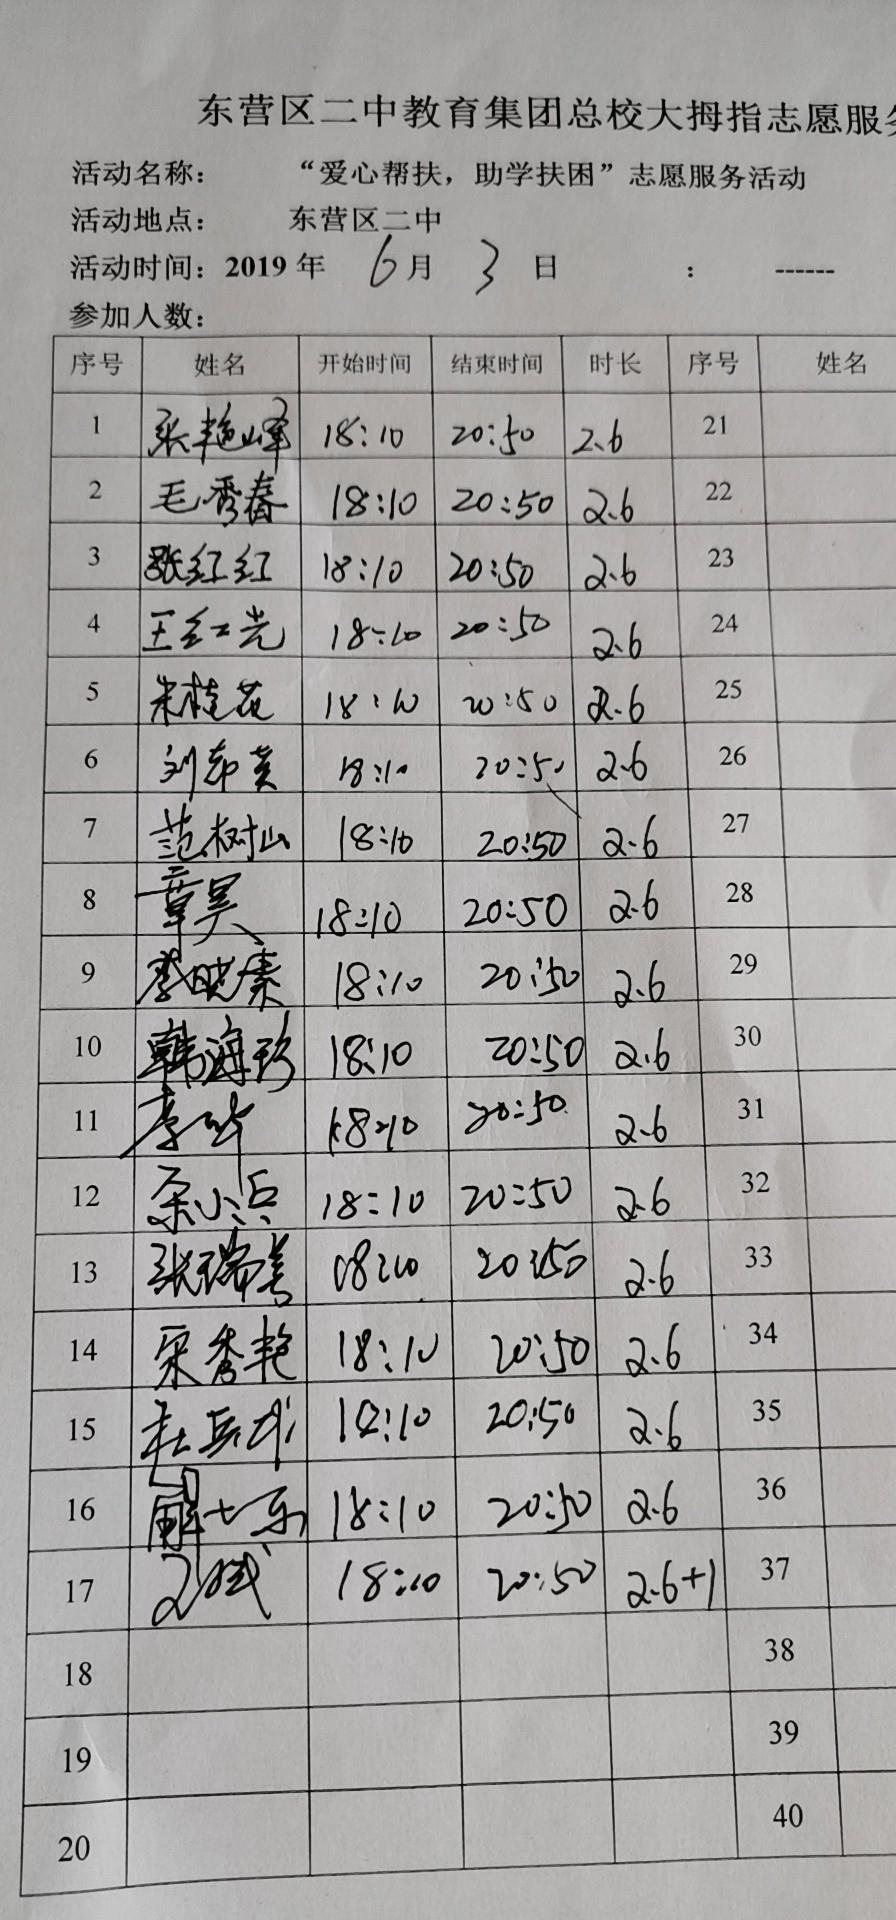 东营区二中教育集团总校大拇指志愿服
活动名称： “爱心帮扶，助学扶困”志愿服务活动
活动地点： 东营区二中
活动时间：2019年 6月 3日 ： ------
参加人数：
序号 姓名 开始时间 结束时间 时长 序号 姓名
1 张艳峰 18:10 20:50 2.6 21
2 毛秀春 18:10 20:50 2.6 22
3 张红红 18:10 20:50 2.6 23
4 王红光 18:10 20:50 2.6 24
5 朱桂花 18:10 20:50 2.6 25
6 18:10 20:50 2.6 26
7 范树山 18:10 20:50 2.6 27
8 章昊 18:10 20:50 2.6 28
9 李晓 18:10 20:50 2.6 29
10 韩海珍 18:10 20:50 2.6 30
11 李 18:10 20:50 2.6 31
12 小兵 18:10 20:50 2.6 32
13 张瑞 18:10 20:50 2.6 33
14 宋秀艳 18:10 20:50 2.6 34
15 杜兵 18:10 20:50 2.6 35
16 解 18:10 20:50 2.6 36
17 18:10 20:50 2.6+1 37
18 38
19 39
20 40